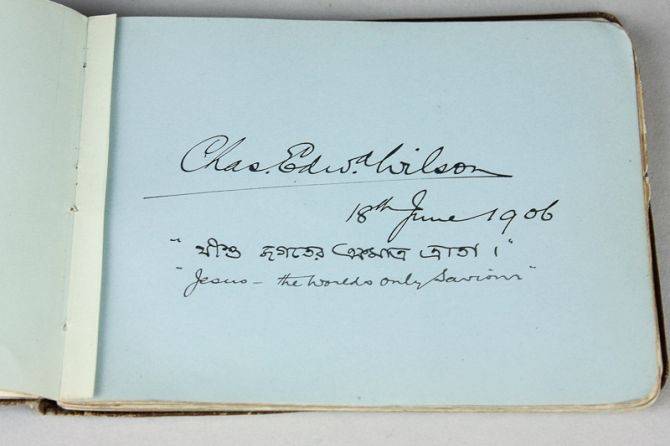 Chas. Edwd. Wilson
18th June 1906
"যীশু জগতের একমাত্র ত্রাতা।"
"Jesus – the World's only Saviour"